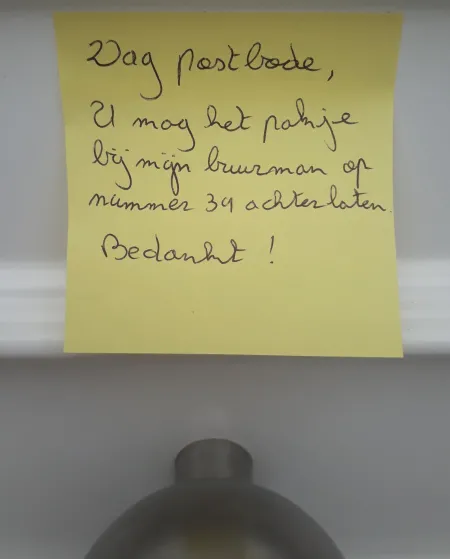 Dag postbode,
U mag het pakje
bij mijn buurman op
nummer 39 achterlaten.
Bedankt !